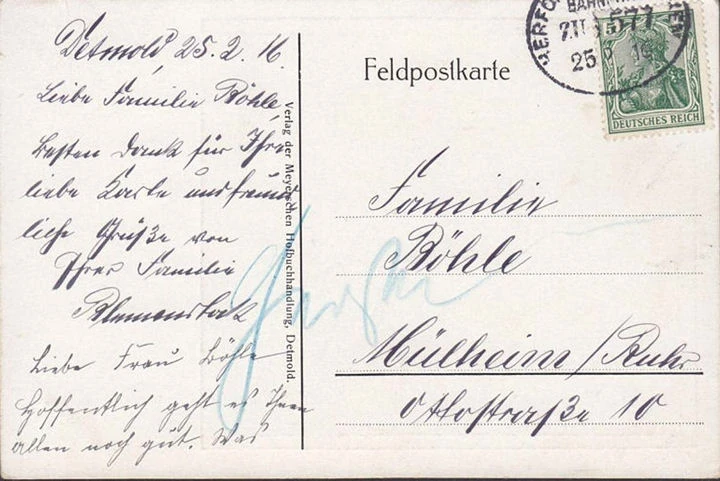 Detmold, 25. 2. 16.
Liebe Familie Böhle,
Besten Dank für Ihre
liebe Karte und freund
liche Grüße von
Ihrer Familie
Blumenstock
Liebe Frau Böhle
Hoffentlich geht es Ihnen
allen noch gut. Was
Verlag der Meyerschen Hofbuchhandlung, Detmold.
Feldpostkarte
BAHNPOST
ZUG 577
25
DEUTSCHES REICH
Familie
Böhle
Mülheim/Ruhr
Ottostraße 10